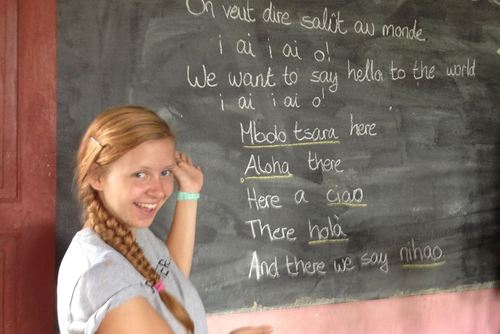 On veut dire salût au monde
i ai i ai o!
We want to say hello to the world
i ai i ai o!
Mbolo tsara here
Aloha there
Here a ciao
There holà
And there we say nihao